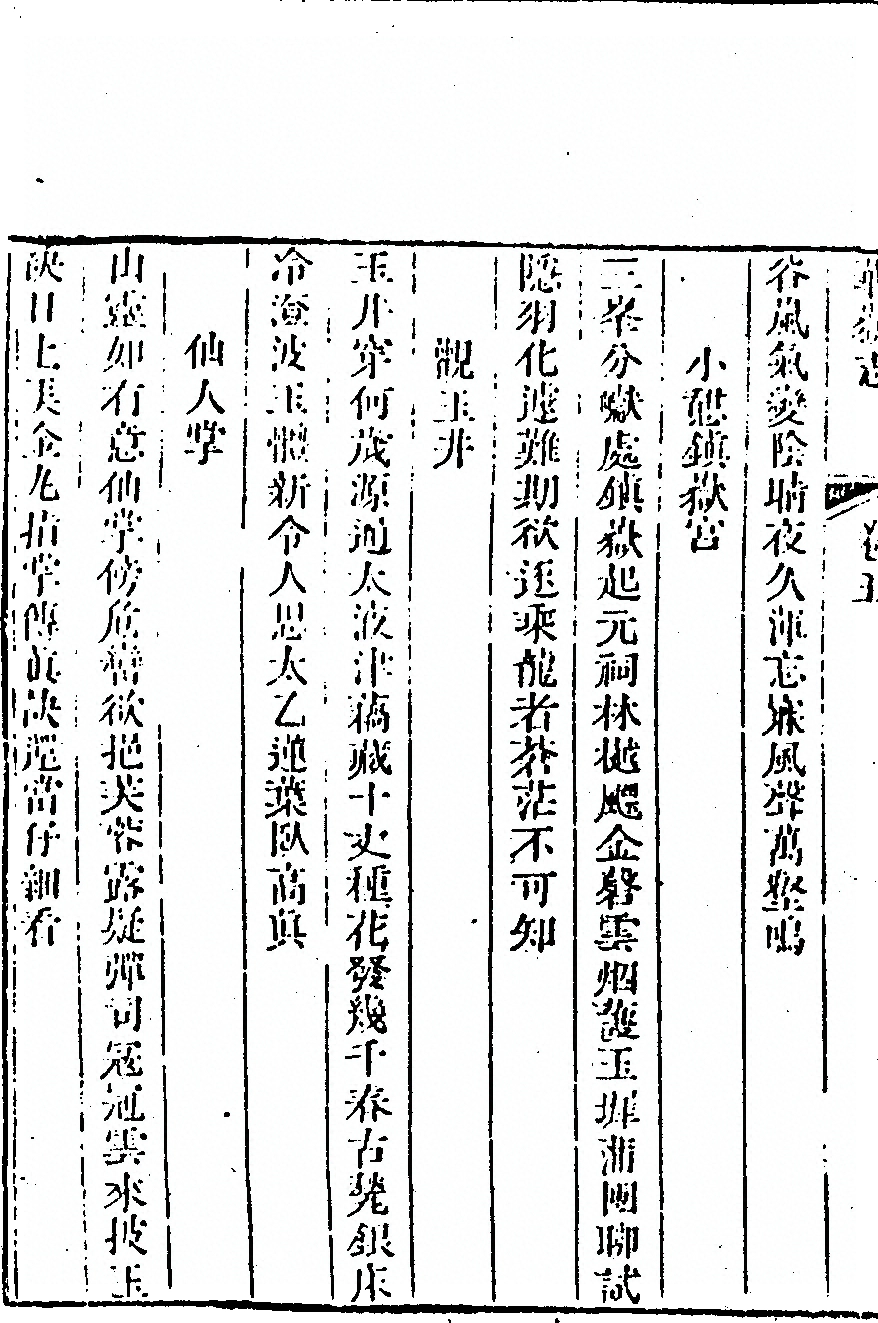 華嶽志
卷五
谷嵐氣變陰晴夜久渾忘寐風聲萬壑鳴
小憩鎮嶽宮
三峯分嶽處鎮嶽起元祠林樾颸金磬雲烟護玉墀蒲團聊試
隱羽化邈難期欲逐乘龍者蒼茫不可知
觀玉井
玉井穿何歲源通太液津藕藏十丈種花發幾千春古甃銀床
冷澄波玉體新令人思太乙蓮葉臥高真
仙人掌
山靈如有意仙掌傍危巒欲挹芙蓉露疑彈司寇冠雲來披玉
訣日上天金丸指掌傳真訣還當仔細看